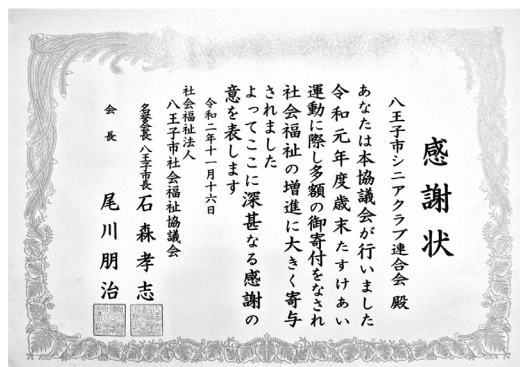 感謝状
八王子市シニアクラブ連合会 殿
あなたは本協議会が行いました
令和元年度歳末たすけあい
運動に際し多額の御寄付をなされ
社会福祉の増進に大きく寄与
されました
よってここに深甚なる感謝の
意を表します
令和二年十一月十六日
社会福祉法人
八王子市社会福祉協議会
名誉会長 八王子市長 石森孝志
会長 尾川朋治